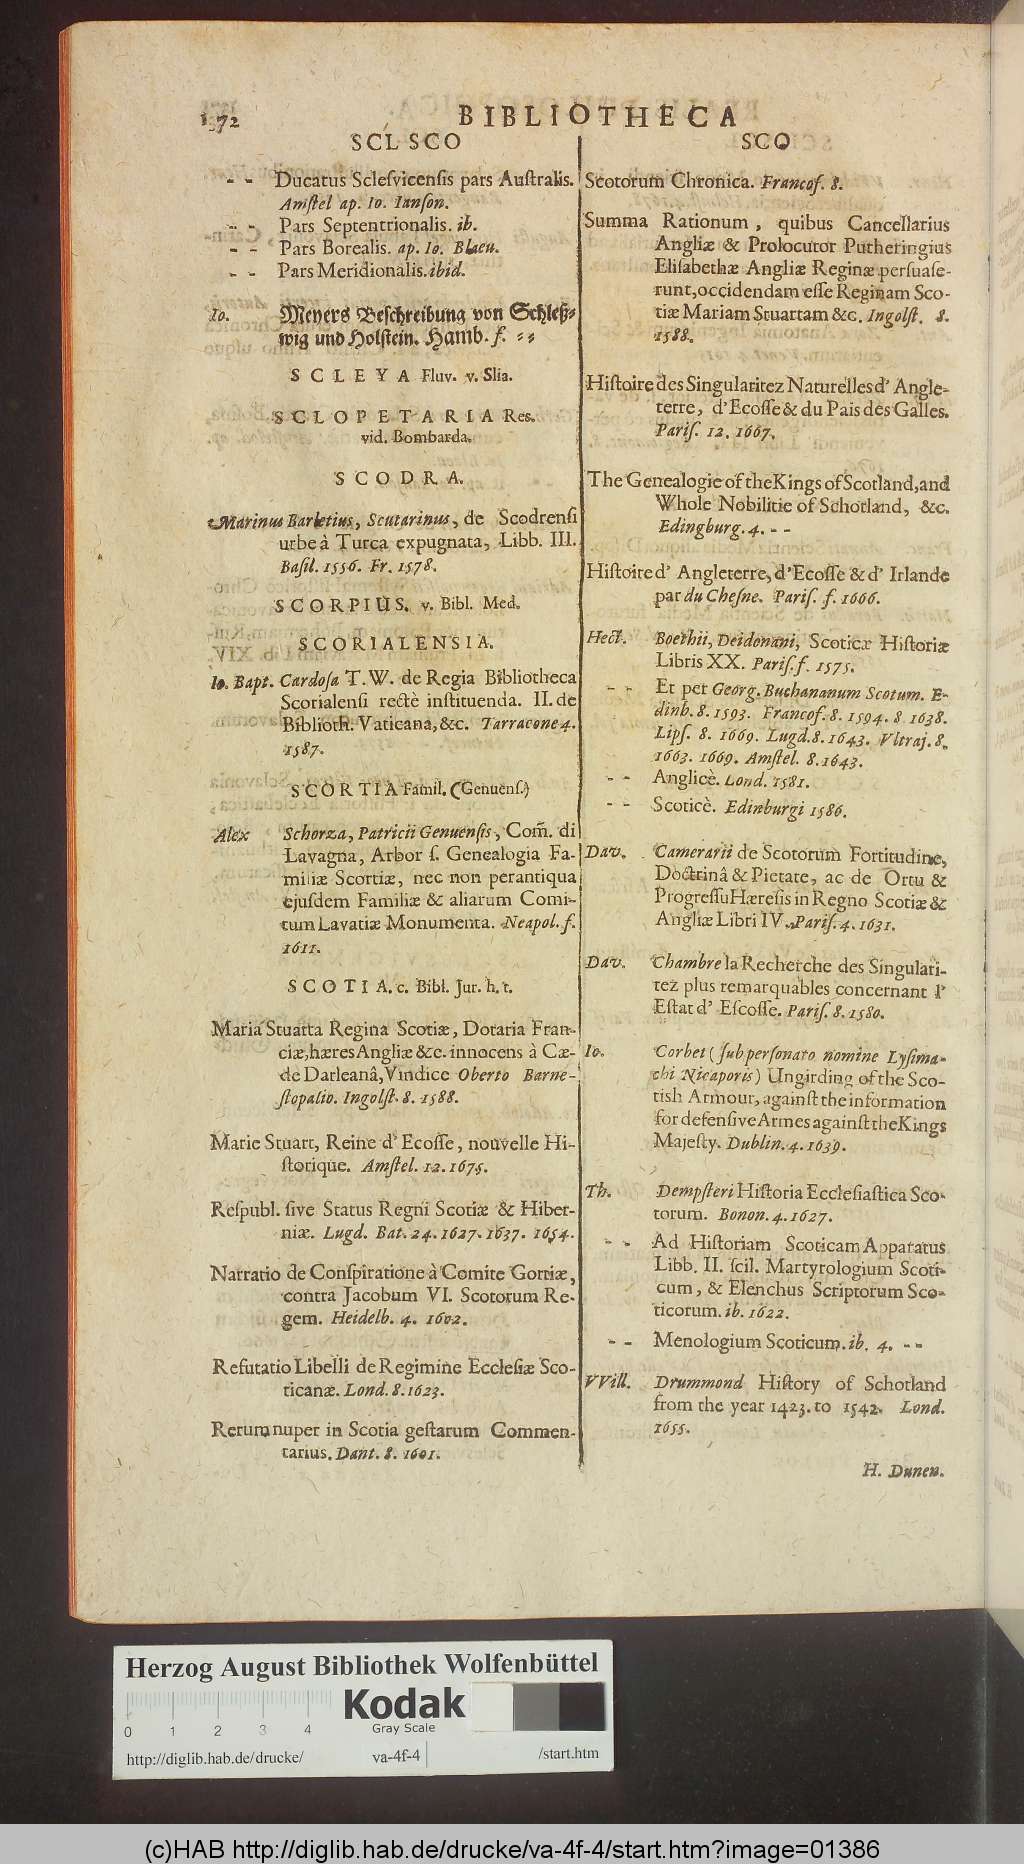 1372
BIBLIOTHECA
SCL SCO
- - Ducatus Sclesvicensis pars Australis.
Amstel ap. Io. Ianson.
- - Pars Septentrionalis. ib.
- - Pars Borealis. ap. Io. Blaeu.
- - Pars Meridionalis. ibid.
Io. Meyers Beschreibung von Schleß-
wig und Holstein. Hamb. f. - -
SCLEYA Fluv. v. Slia.
SCLOPETARIA Res.
vid. Bombarda.
SCODRA.
Marinus Barletius, Scutarinus, de Scodrensi
urbe à Turca expugnata, Libb. III.
Basil. 1556. Fr. 1578.
SCORPIUS. v. Bibl. Med.
SCORIALENSIA.
Io. Bapt. Cardosa T. W. de Regia Bibliotheca
Scorialensi rectè instituenda. II. de
Biblioth. Vaticana, &c. Tarracone 4.
1587.
SCORTIA Famil. (Genuens.)
Alex Schorza, Patricii Genuensis, Com̃. di
Lavagna, Arbor s. Genealogia Fa-
miliæ Scortiæ, nec non perantiqua
ejusdem Familiæ & aliarum Comi-
tum Lavatiæ Monumenta. Neapol. f.
1611.
SCOTIA. c. Bibl. Jur. h. t.
Maria Stuarta Regina Scotiæ, Dotaria Fran-
ciæ, hæres Angliæ &c. innocens à Cæ-
de Darleanâ, Vindice Oberto Barne-
stopalio. Ingolst. 8. 1588.
Marie Stuart, Reine d' Ecosse, nouvelle Hi-
storique. Amstel. 12. 1675.
Respubl. sive Status Regni Scotiæ & Hiber-
niæ. Lugd. Bat. 24. 1627. 1637. 1654.
Narratio de Conspiratione à Comite Gorriæ,
contra Jacobum VI. Scotorum Re-
gem. Heidelb. 4. 1602.
Refutatio Libelli de Regimine Ecclesiæ Sco-
ticanæ. Lond. 8. 1623.
Rerum nuper in Scotia gestarum Commen-
tarius. Dant. 8. 1601.
SCO
Scotorum Chronica. Francof. 8.
Summa Rationum, quibus Cancellarius
Angliæ & Prolocutor Putheringius
Elisabethæ Angliæ Reginæ persuase-
runt, occidendam esse Reginam Sco-
tiæ Mariam Stuartam &c. Ingolst. 8.
1588.
Histoire des Singularitez Naturelles d' Angle-
terre, d' Ecosse & du Pais des Galles.
Paris. 12. 1667.
The Genealogie of the Kings of Scotland, and
Whole Nobilitie of Schotland, &c.
Edingburg. 4. - -
Histoire d' Angleterre, d' Ecosse & d' Irlande
par du Chesne. Paris. f. 1666.
Hect. Boethii, Deidonani, Scoticæ Historiæ
Libris XX. Paris. f. 1575.
- - Et per Georg. Buchananum Scotum. E-
dinb. 8. 1593. Francof. 8. 1594. 8 1638.
Lips. 8. 1669. Lugd. 8. 1643. Vltraj. 8.
1663. 1669. Amstel. 8. 1643.
- - Anglicè. Lond. 1581.
- - Scoticè. Edinburgi 1586.
Dav. Camerarii de Scotorum Fortitudine,
Doctrinâ & Pietate, ac de Ortu &
Progressu Hæresis in Regno Scotiæ &
Angliæ Libri IV. Paris. 4. 1631.
Dav. Chambre la Recherche des Singulari-
tez plus remarquables concernant l'
Estat d' Escosse. Paris. 8. 1580.
Io. Corbet ( sub personato nomine Lysima-
chi Nicaporis) Ungirding of the Sco-
tish Armour, against the information
for defensive Armes against the Kings
Majesty. Dublin. 4. 1639.
Th. Dempsteri Historia Ecclesiastica Sco-
torum. Bonon. 4. 1627.
- - Ad Historiam Scoticam Apparatus
Libb. II. scil. Martyrologium Scoti-
cum, & Elenchus Scriptorum Sco-
ticorum. ib. 1622.
- - Menologium Scoticum. ib. 4. - -
VVill. Drummond History of Schotland
from the year 1423. to 1542. Lond.
1655.
H. Dunen.
Herzog August Bibliothek Wolfenbüttel
0 1 2 3 4
Kodak
Gray Scale
http://diglib.hab.de/drucke/ va-4f-4 /start.htm
(c)HAB http://diglib.hab.de/drucke/va-4f-4/start.htm?image=01386